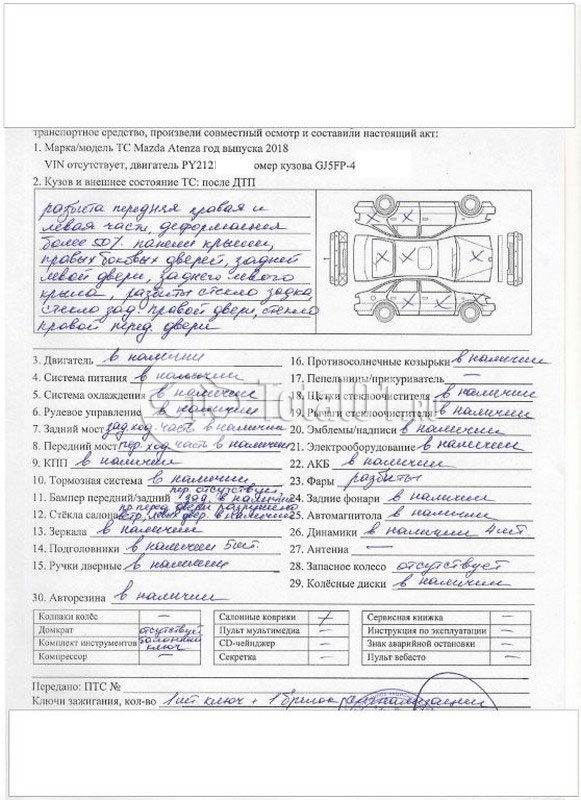 транспортное средство, произвели совместный осмотр и составили настоящий акт:
1. Марка/модель ТС Mazda Atenza год выпуска 2018
VIN отсутствует, двигатель PY212 омер кузова GJ5FP-4
2. Кузов и внешнее состояние ТС: после ДТП
разбита передняя правая и
левая части, деформация
более 50% панели крыши,
правых боковых дверей, задней
левой двери, заднего левого
крыла, разбиты стекло задка,
стекло зад. правой двери, стекло
правой перед. двери
3. Двигатель в наличии
4. Система питания в наличии
5. Система охлаждения в наличии
6. Рулевое управление в наличии
7. Задний мост зад. ход. часть в наличии
8. Передний мост пер. ход. часть в наличии
9. КПП в наличии
10. Тормозная система в наличии
11. Бампер передний/задний пер. отсутствует, зад. в наличии
12. Стёкла салона пр. перед. двери разрушено
ветр., левых двер. в наличии
13. Зеркала в наличии
14. Подголовники в наличии 5шт.
15. Ручки дверные в наличии
16. Противосолнечные козырьки в наличии
17. Пепельницы/прикуриватель —
18. Щетки стеклоочистителя в наличии
19. стеклоочистителя в наличии
20. Эмблемы/надписи в наличии
21. Электрооборудование в наличии
22. АКБ в наличии
23. Фары разбиты
24. Задние фонари в наличии
25. Автомагнитола в наличии
26. Динамики в наличии 4шт
27. Антенна —
28. Запасное колесо отсутствует
29. Колёсные диски в наличии
30. Авторезина в наличии
Колпаки колёс —
Домкрат отсутствует
Комплект инструментов балонный
ключ
Компрессор —
Салонные коврики +
Пульт мультимедиа —
CD-чейнджер —
Секретка —
Сервисная книжка —
Инструкция по эксплуатации —
Знак аварийной остановки —
Пульт вебасто —
Передано: ПТС №
Ключи зажигания, кол-во 1шт ключ + 1 брелок сигнализации